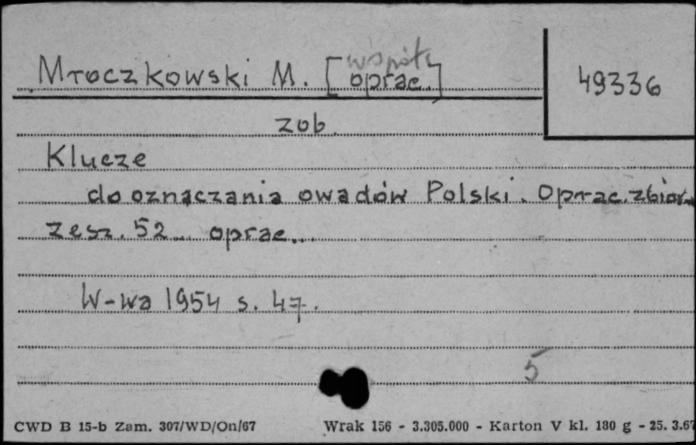 współ
Mroczkowski M. [oprac.]
49336
zob.
Klucze
do oznaczania owadów Polski. Oprac. zbior.
zesz. 52... oprac...
W-wa 1954 s. 47.
5
CWD B 15-b Zam. 307/WD/On/67
Wrak 156 - 3.305.000 - Karton V kl. 180 g - 25. 3.67